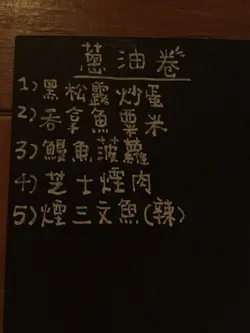 蔥油卷
1) 黑松露炒蛋
2) 吞拿魚粟米
3) 鰻魚菠蘿
4) 芝士煙肉
5) 煙三文魚(辣)